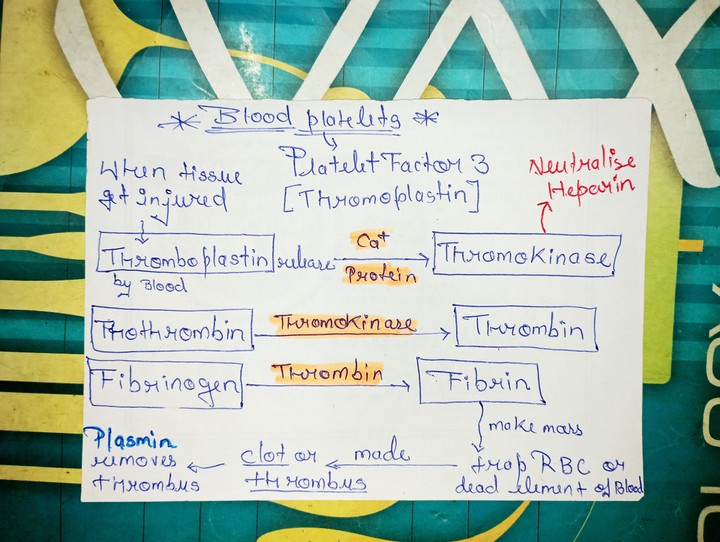 * Blood platelets *
Platelet Factor 3
[Thromoplastin]
When tissue
get injured
Neutralise
Heparin
Thromboplastin release Ca+ Thromokinase
by Blood Protein
Prothrombin Thromokinase Thrombin
Fibrinogen Thrombin Fibrin
make mass
trap RBC or
dead element of Blood
made
clot or
thrombus
Plasmin
removes
thrombus